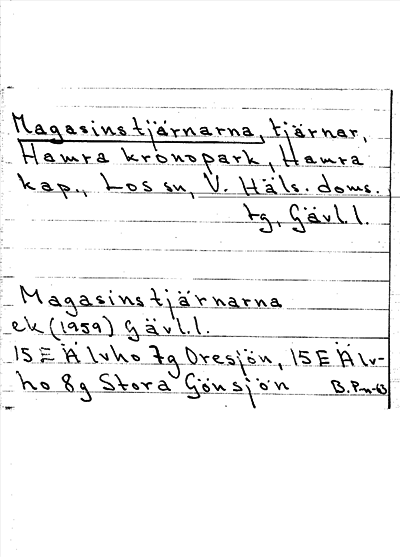 Magasinstjärnarna, tjärnar,
Hamra kronopark, Hamra
kap., Los sn, V. Häls. doms.
tg, Gävl.l.
Magasinstjärnarna
ek (1959) Gävl.l.
15 E Älvho 7g Oresjön, 15 E Älv-
ho 8g Stora Gönsjön B. P-n-63